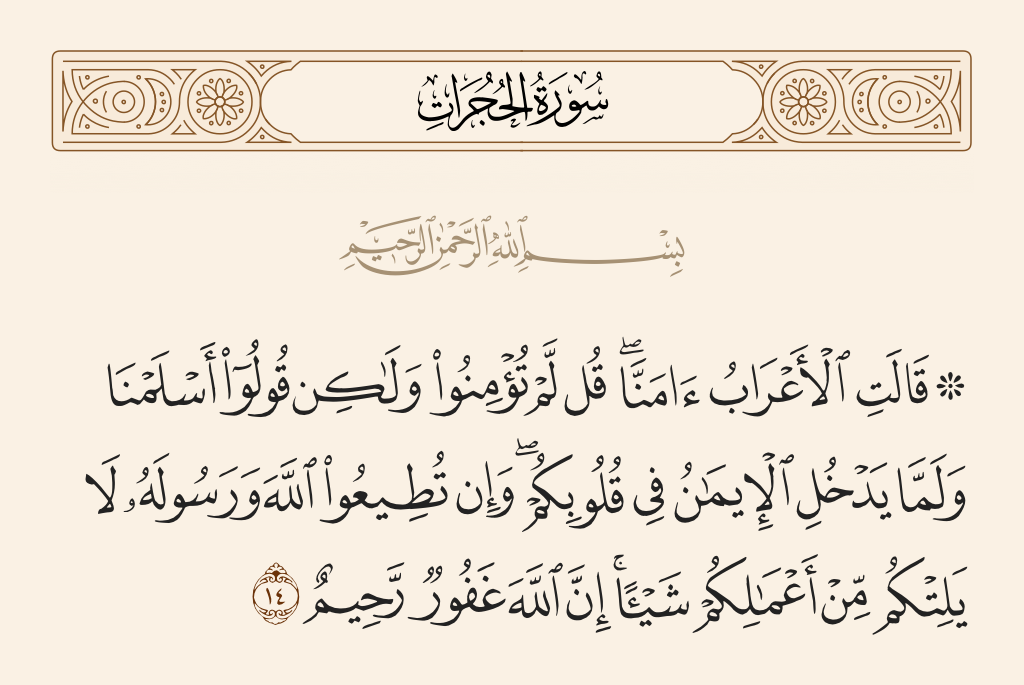 سُورَةُ الحُجُرَاتِ
بِسْمِ ٱللَّهِ ٱلرَّحْمَٰنِ ٱلرَّحِيمِ
۞ قَالَتِ ٱلْأَعْرَابُ ءَامَنَّاۖ قُل لَّمْ تُؤْمِنُوا۟ وَلَـٰكِن قُولُوٓا۟ أَسْلَمْنَا
وَلَمَّا يَدْخُلِ ٱلْإِيمَـٰنُ فِى قُلُوبِكُمْۖ وَإِن تُطِيعُوا۟ ٱللَّهَ وَرَسُولَهُۥ لَا
يَلِتْكُم مِّنْ أَعْمَـٰلِكُمْ شَيْـًٔاۚ إِنَّ ٱللَّهَ غَفُورٌ رَّحِيمٌ ١٤